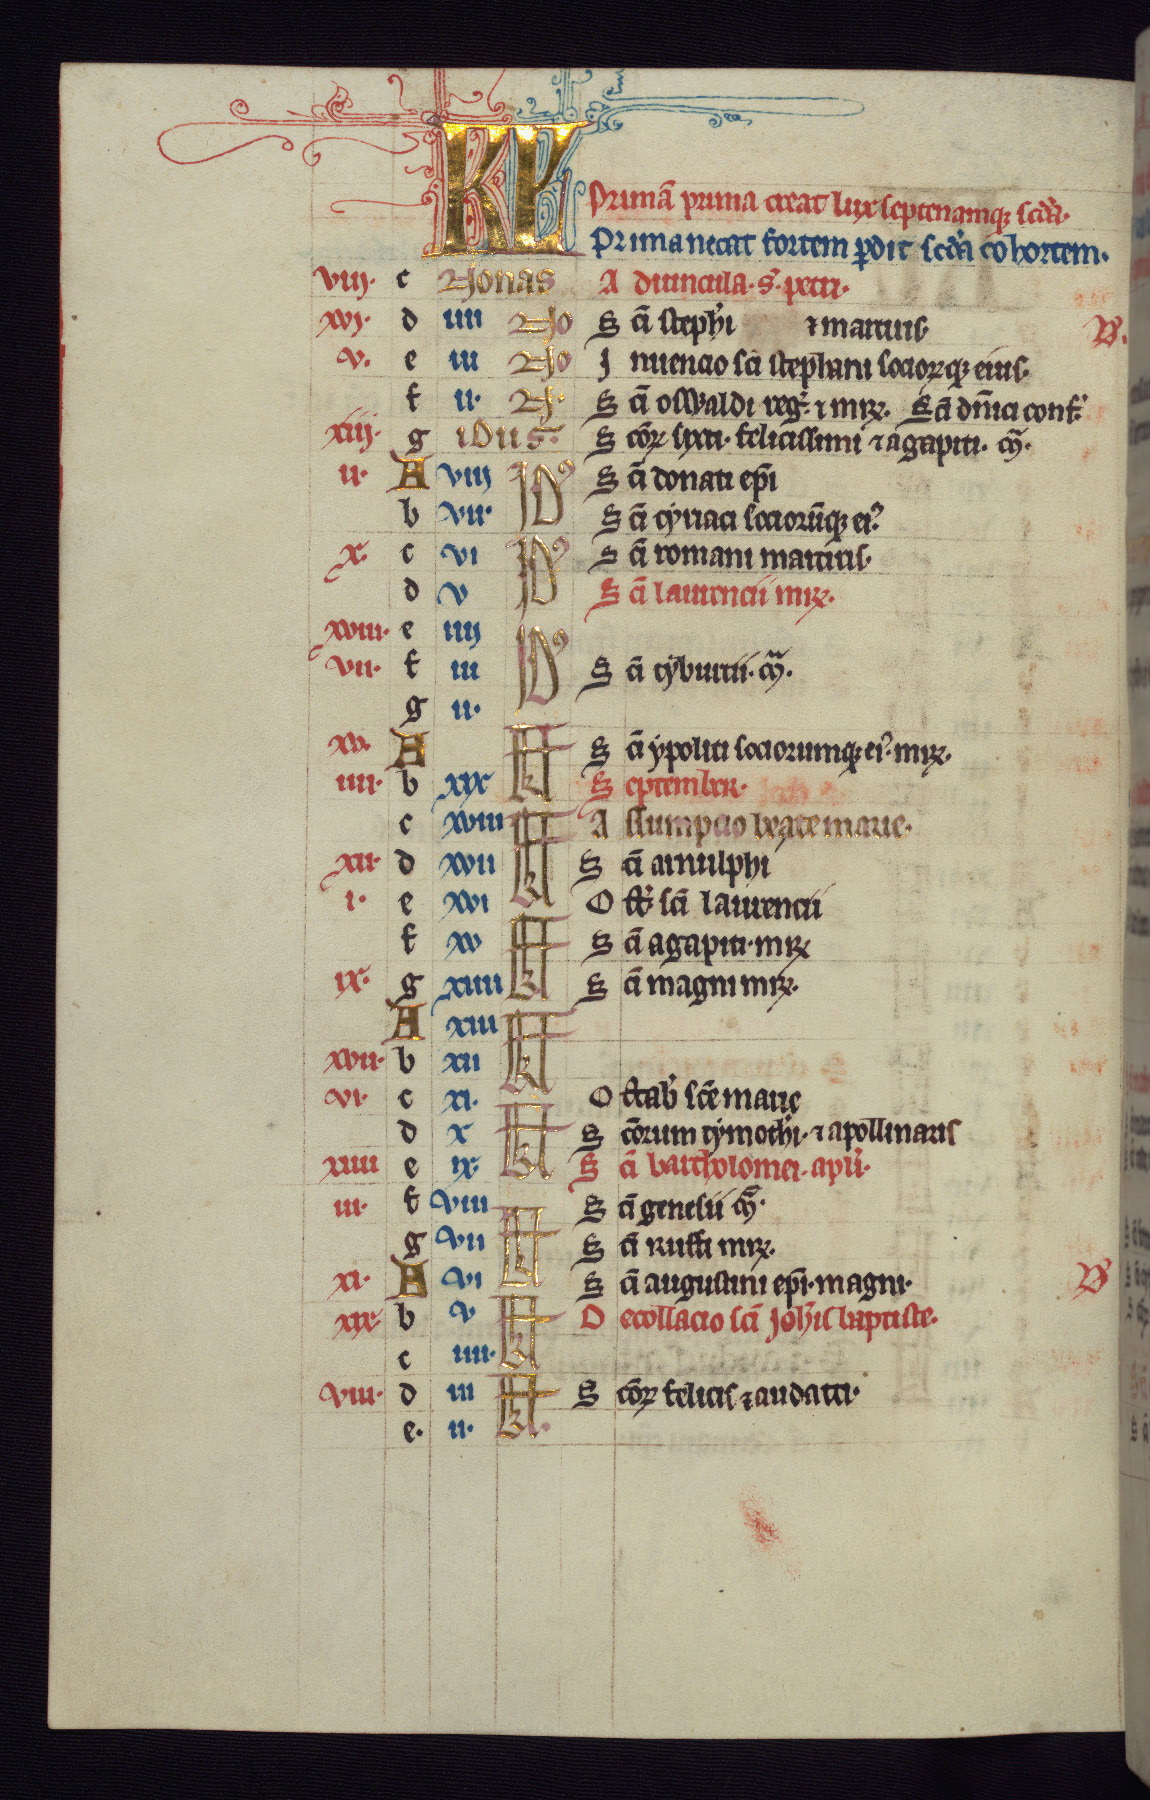 KL
Primā prima creat lux septenamq; scd̄a.
Prima necat fortem p̄dit scd̄a cohortem.
viij. c Nonas Ad uincula. s. petri.
xvj. d iiii No Scī steph̄i ⁊ martiris B.
v. e iii No Inuencio scī steph̄ani sociorꝝq; eius.
f ii. N. Scī osWaldi reg. ⁊ mrꝝ. Scī dn̄ici conf.
xiij. g idus. Scōrꝝ sixti. felicissimi ⁊ agapiti. m̄.
ii. A viij ID Scī donati ep̄i
b vii. Scī cyriaci sociorūq; ei.
x. c vi ID Scī romani martiris.
d v Scī laurencii mrꝝ.
xviii. e iiij ID
vii. f iii Scī tyburtii. m̄.
g ii.
xv. A kł Scī ypoliti sociorumq; ei. mrꝝ.
iiii. b xix September.
c xviii kł Assumpcio beate marie.
xii. d xvii Scī arnulphi
i. e xvi Oct̄. scī laurencii
f xv kł Scī agapiti. mrꝝ
ix. g xiiii Scī magni mrꝝ.
A xiii kł
xvii. b xii
vi. c xi. kł Octab̄ scē marie
d x Scōrum tymoth̄i. ⁊ apollinaris
xiiii e ix. Scī bartholomei. apli.
iii. f viii kł Scī genesii m̄.
g vii Scī Ruffi mrꝝ.
xi. A vi Scī augustini ep̄i. magni. B
xix. b v kł Decollacio scī Joh̄is baptiste.
c iiii.
viii. d iii kł. Scōrꝝ felicis ⁊ audacti.
e. ii.